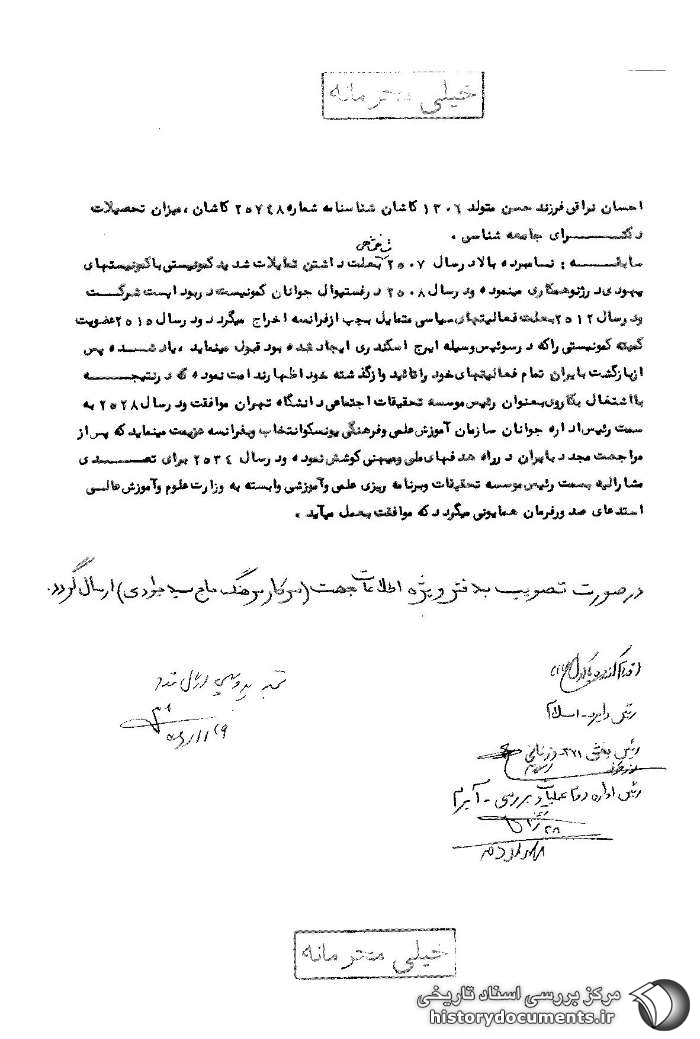 خیلی محرمانه
احسان نراقی فرزند حسن متولد ۱۳۰۶ کاشان شناسنامه شماره ۲۵۷۴۸ کاشان ، میزان تحصیلات
دکتـــــرای جامعه شناسی .
سابقـــه : نامبرده بالا در سال ۲۵۰۷ بعلت داشتن تمایلات شدید کمونیستی با کمونیستهای
یهودی در ژنو همکاری مینموده و در سال ۲۵۰۸ در فستیوال جوانان کمونیست در بوداپست شرکـــت
و در سال ۲۵۱۲ بعلت فعالیتهای سیاسی متمایل بچپ از فرانسه اخراج میگردد و در سال ۲۵۱۵ عضویت
کمیته کمونیستی را که در سوئیس وسیله ایرج اسکندری ایجاد شده بود قبول مینماید ، یاد شـــده پس
از بازگشت بایران تمام فعالیتهای خود را تائید و از گذشته خود اظهار ندامت نموده که در نتیجـــه
با اشتغال بکار وی بعنوان رئیس موسسه تحقیقات اجتماعی دانشگاه تهران موافقت و در سال ۲۵۲۸ به
سمت رئیس اداره جوانان سازمان آموزش علمی و فرهنگی یونسکو انتخاب و بفرانسه عزیمت مینماید که پس از
مراجعت مجدد بایران در راه هدفهای ملی و میهنی کوشش نموده و در سال ۲۵۳۴ برای تصـــدی
مشارالیه بسمت رئیس موسسه تحقیقات و برنامه ریزی علمی و آموزشی وابسته به وزارت علوم و آموزش عالـــی
استدعای صدور فرمان همایونی میگردد که موافقت بعمل میآید .
در صورت تصویب به دفتر ویژه اطلاعات جهت (سرکار سرهنگ حاج سید جوادی) ارسال گردد.
رئیس دایره - اسلام
رئیس بخش ۳۷۱
رئیس اداره دوم عملیات و بررسی - آیرم
خیلی محرمانه
مرکز بررسی اسناد تاریخی
historydocuments.ir